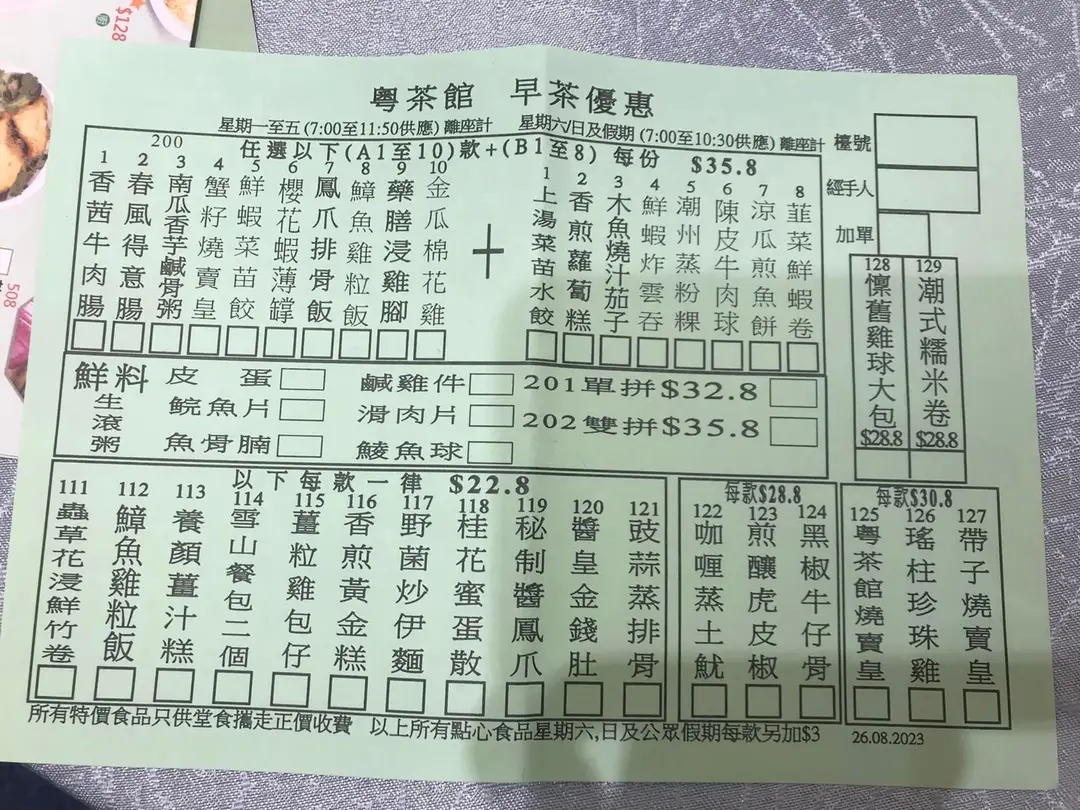 $128
508
粵茶館 早茶優惠
星期一至五 (7:00至11:50供應) 離座計 星期六/日及假期 (7:00至10:30供應) 離座計
檯號
經手人
加單
200 任選以下(A1至10)款+(B1至8) 每份 $35.8
1 香茜牛肉腸
2 春風得意腸
3 南瓜香芋鹹骨粥
4 蟹籽燒賣皇
5 鮮蝦菜苗餃
6 櫻花蝦薄罉
7 鳳爪排骨飯
8 鱆魚雞粒飯
9 藥膳浸雞腳
10 金瓜棉花雞
+
1 上湯菜苗水餃
2 香煎蘿蔔糕
3 木魚燒汁茄子
4 鮮蝦炸雲吞
5 潮州蒸粉粿
6 陳皮牛肉球
7 涼瓜煎魚餅
8 韮菜鮮蝦卷
128 懷舊雞球大包 $28.8
129 潮式糯米卷 $28.8
鮮料生滾粥
皮蛋 鹹雞件 201單拼$32.8
鯇魚片 滑肉片 202雙拼$35.8
魚骨腩 鯪魚球
以下每款一律 $22.8
111 蟲草花浸鮮竹卷
112 鱆魚雞粒飯
113 養顏薑汁糕
114 雪山餐包二個
115 薑粒雞包仔
116 香煎黃金糕
117 野菌炒伊麵
118 桂花蜜蛋散
119 秘制醬鳳爪
120 醬皇金錢肚
121 豉蒜蒸排骨
每款$28.8
122 咖喱蒸土魷
123 煎釀虎皮椒
124 黑椒牛仔骨
每款$30.8
125 粵茶館燒賣皇
126 瑤柱珍珠雞
127 帶子燒賣皇
所有特價食品只供堂食攜走正價收費 以上所有點心食品星期六,日及公眾假期每款另加$3 26.08.2023